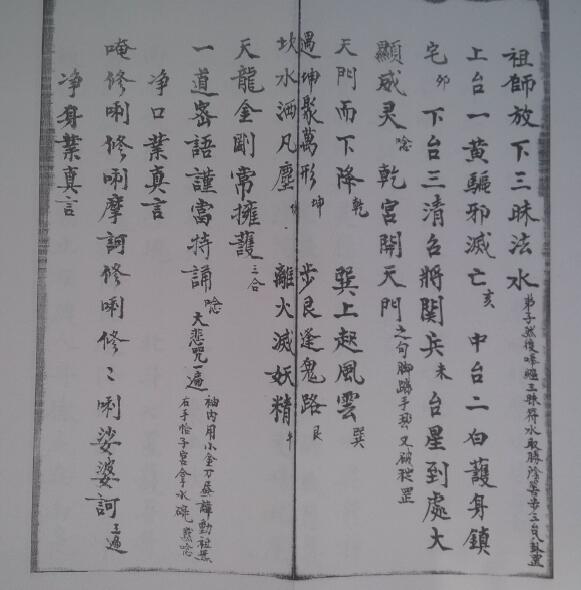 祖師放下三昧法水 弟子然後嗥經三昧符水取勝陰笞步三台八卦罡
上台一黃驅邪滅亡亥 中台二白護身鎮
宅卯 下台三清召將関兵未 台星到處大
顯威灵唸 乾宮開天門之句脚踏手契又破獄罡
天門而下降乾 巽上起風雲巽
遇坤聚萬形坤 步艮逢鬼路艮
坎水洒凡塵 離火滅妖精午
天龍金剛常擁護三合
一道宻語謹當持誦唸大悲咒一遍 袖內用小金刀 右手恰子宮拿水碗
净口業真言
唵修唎修唎摩訶修唎修〻唎娑婆訶三遍
净身業真言